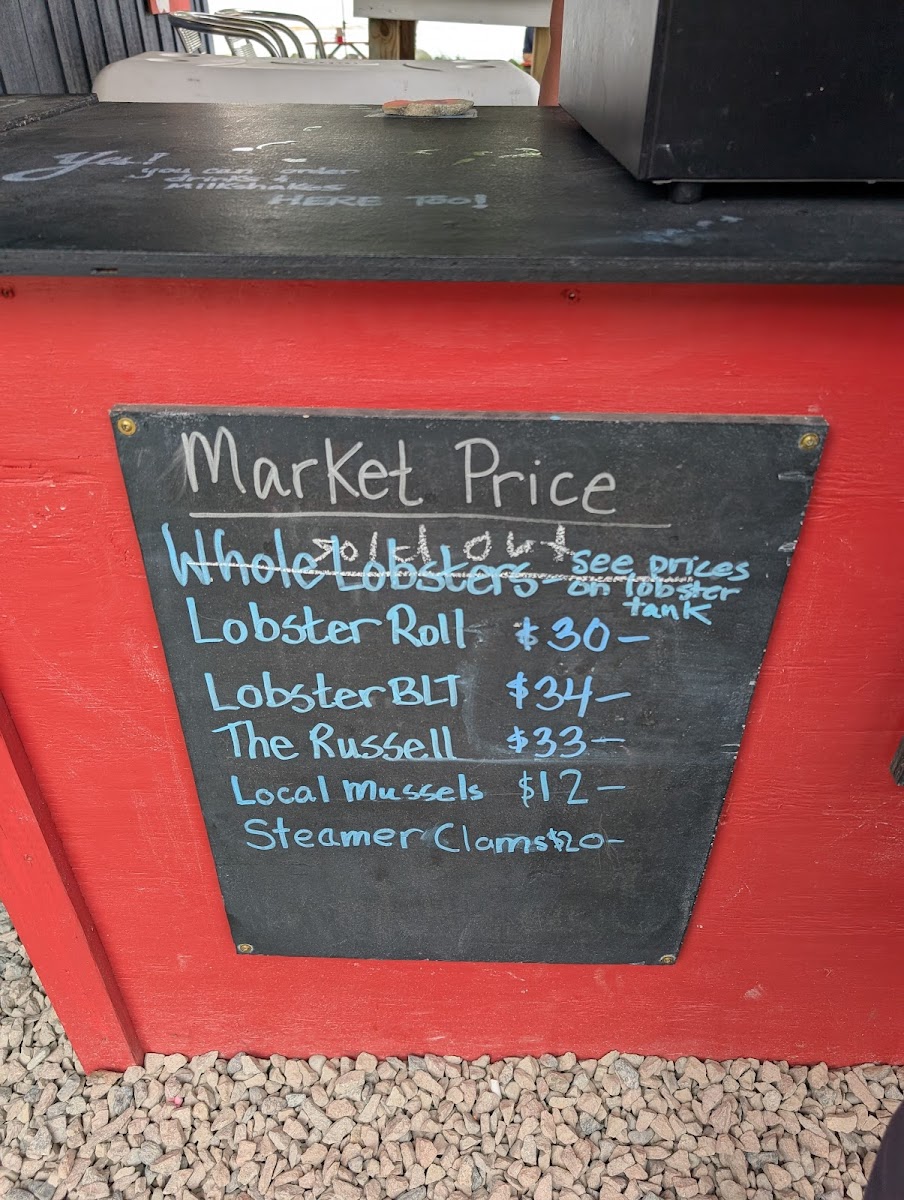 Yes!
you can order
drinks &
Milkshakes
HERE TOO!
Market Price
sold out
Whole Lobsters see prices
on lobster
tank
Lobster Roll $30-
Lobster BLT $34-
The Russell $33-
Local mussels $12-
Steamer Clams $20-